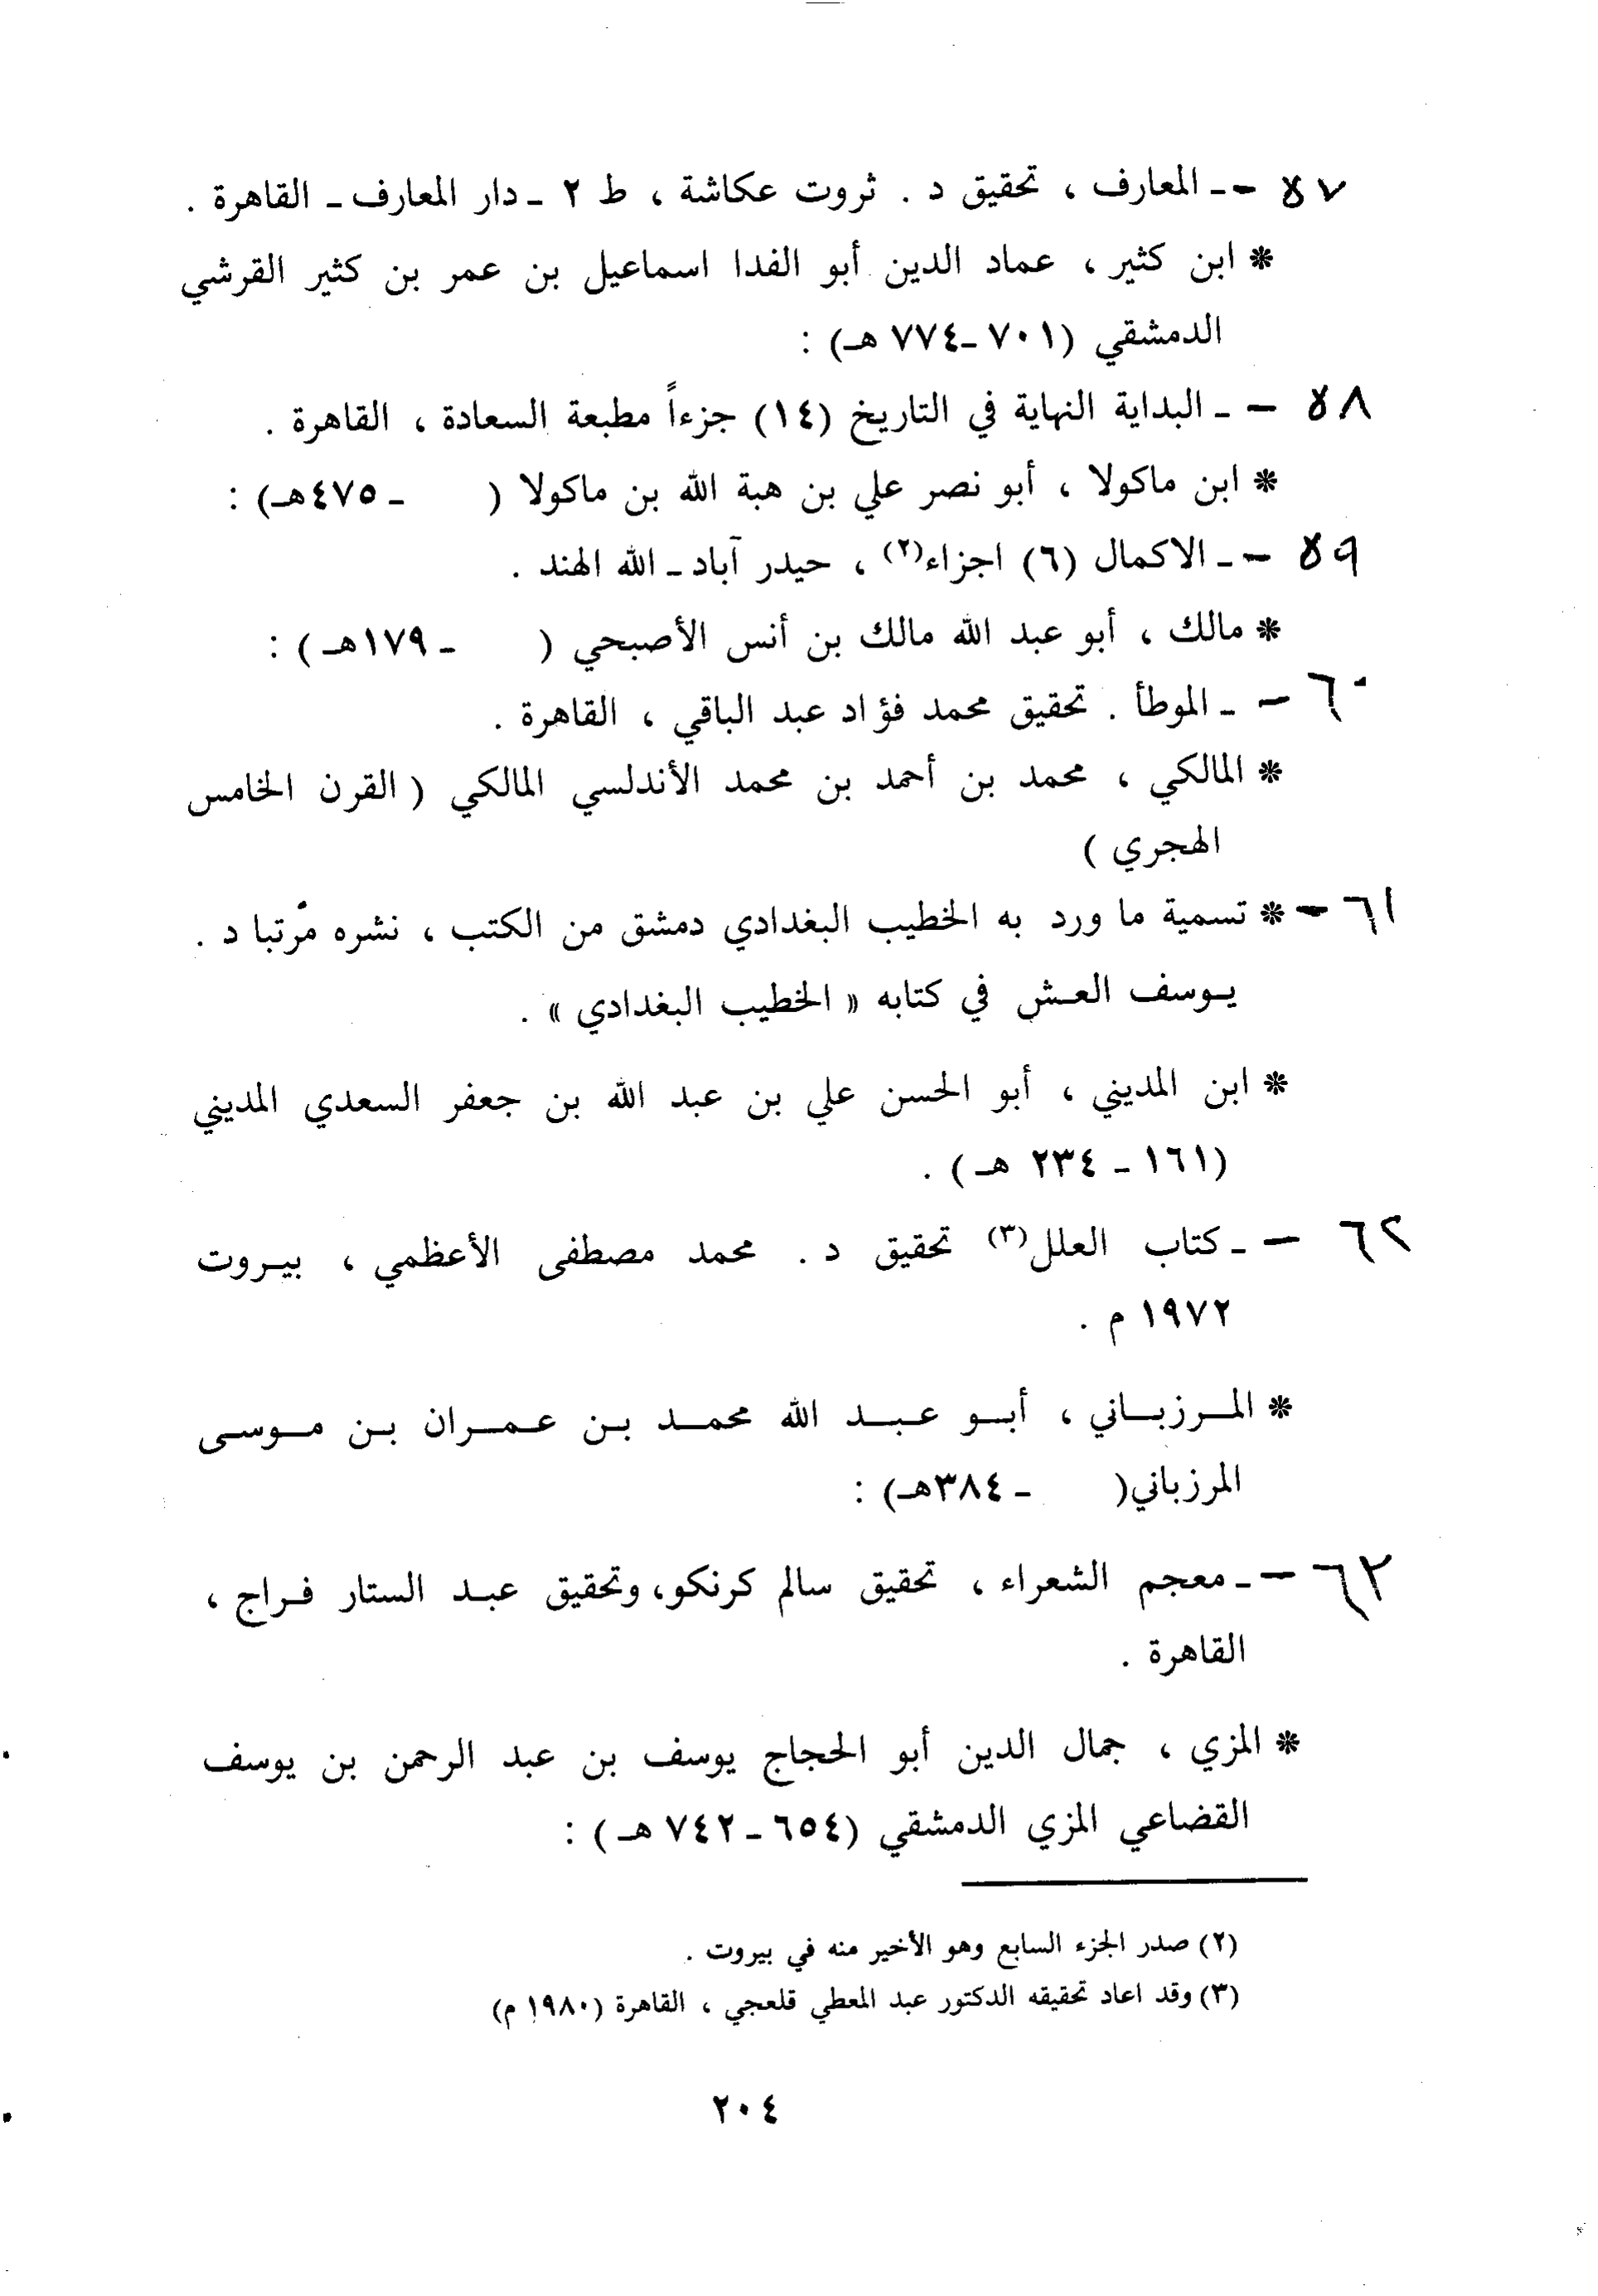 ٥٧ -ـ المعارف ، تحقيق د . ثروت عكاشة ، ط ٢ ـ دار المعارف ـ القاهرة .
* ابن كثير ، عماد الدين أبو الفدا اسماعيل بن عمر بن كثير القرشي
الدمشقي (٧٠١ـ٧٧٤ هـ) :
٥٨ - ـ البداية النهاية في التاريخ (١٤) جزءاً مطبعة السعادة ، القاهرة .
* ابن ماكولا ، أبو نصر علي بن هبة الله بن ماكولا ( ـ ٤٧٥هـ) :
٥٩ - ـ الاكمال (٦) اجزاء(٢) ، حيدر آباد ـ الله الهند .
* مالك ، أبو عبد الله مالك بن أنس الأصبحي ( ـ ١٧٩هـ ) :
٦٠ - ـ الموطأ . تحقيق محمد فؤاد عبد الباقي ، القاهرة .
* المالكي ، محمد بن أحمد بن محمد الأندلسي المالكي ( القرن الخامس
الهجري )
٦١ - * تسمية ما ورد به الخطيب البغدادي دمشق من الكتب ، نشره مرتبا د .
يـوسف العـش في كتابه « الخطيب البغدادي » .
* ابن المديني ، أبو الحسن علي بن عبد الله بن جعفر السعدي المديني
(١٦١ ـ ٢٣٤ هـ) .
٦٢ - ـ كتاب العلل(٣) تحقيق د . محمد مصطفى الأعظمي ، بيـروت
١٩٧٢ م .
* المـرزبـاني ، أبـو عـبـد الله محمـد بـن عـمـران بـن مـوسـى
المرزباني( ـ ٣٨٤هـ) :
٦٣ - ـ معجم الشعراء ، تحقيق سالم كرنكو، وتحقيق عبـد الستار فـراج ،
القاهرة .
* المزي ، جمال الدين أبو الحجاج يوسف بن عبد الرحمن بن يوسف
القضاعي المزي الدمشقي (٦٥٤ـ٧٤٢ هـ ) :
(٢) صدر الجزء السابع وهو الأخير منه في بيروت .
(٣) وقد اعاد تحقيقه الدكتور عبد المعطي قلعجي ، القاهرة (١٩٨٠ م)
٢٠٤